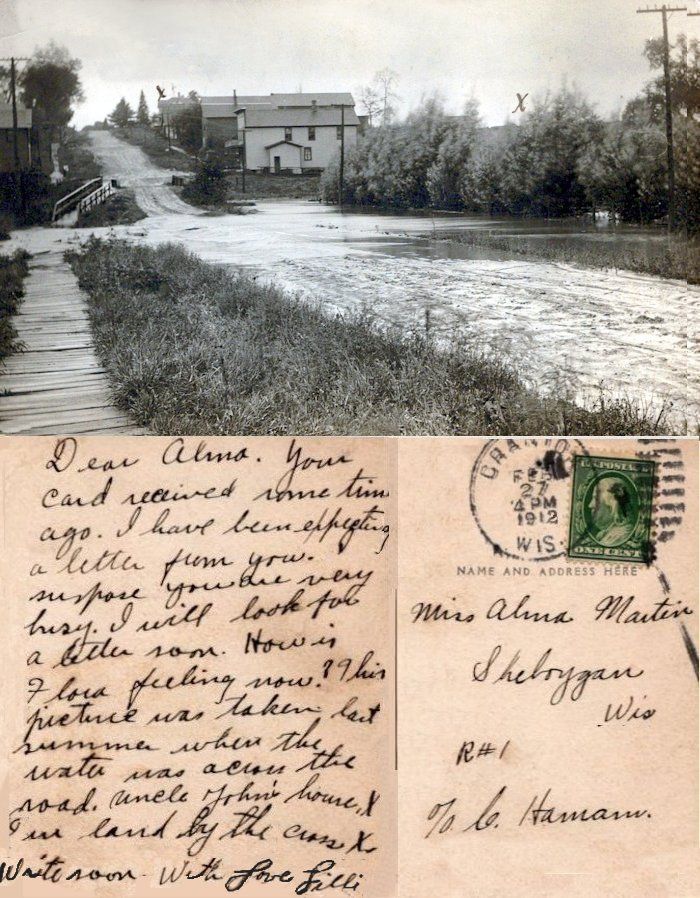 X
X
Dear Alma. Your
card received some time
ago. I have been expecting
a letter from you.
suspose you are very
busy. I will look for
a letter soon. How is
Flora feeling now? This
picture was taken last
summer when the
water was across the
road. Uncle John's house, X
land by the cross X.
Write soon. With Love Lilli
FEB
27
4 PM
1912
WIS.
U.S. POSTAGE
ONE CENT
NAME AND ADDRESS HERE
Miss Alma Martin
Sheboygan
Wis
R#1
c/o C. Hamam.